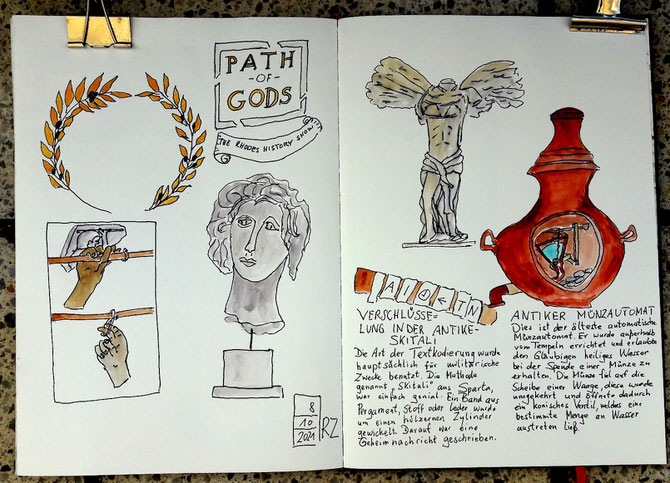 PATH
-OF-
GODS
THE RHODES HISTORY SHOW
8
10
2021
RZ
VERSCHLÜSSE-
LUNG IN DER ANTIKE-
SKITALI
Die Art der Textkodierung wurde
hauptsächlich für militärische
Zwecke benutzt. Die Methode
genannt „Skitali" aus Sparta,
war einfach genial. Ein Band aus
Pergament, Stoff oder Leder wurde
um einen hölzernen Zylinder
gewickelt. Darauf war eine
Geheimnachricht geschrieben.
ANTIKER MÜNZAUTOMAT
Dies ist der älteste automatische
Münzautomat. Er wurde außerhalb
vom Tempeln errichtet und erlaubte
den Gläubigen heiliges Wasser
bei der Spende einer Münze zu
erhalten. Die Münze fiel auf die
Scheibe einer Waage, diese wurde
umgekehrt und öffnete dadurch
ein konisches Ventil, welches eine
bestimmte Menge an Wasser
austreten ließ.